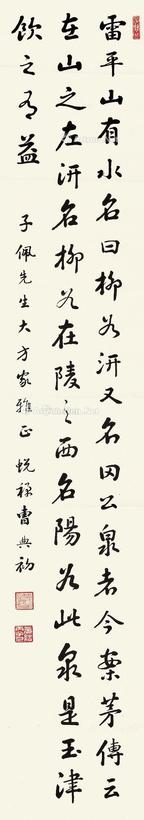 雷平山有水名曰柳谷汧又名田公泉者今案茅傳云
在山之左汧名柳谷在陵之西名陽谷此泉是玉津
飲之有益
子佩先生大方家雅正 蜕禅曹典初